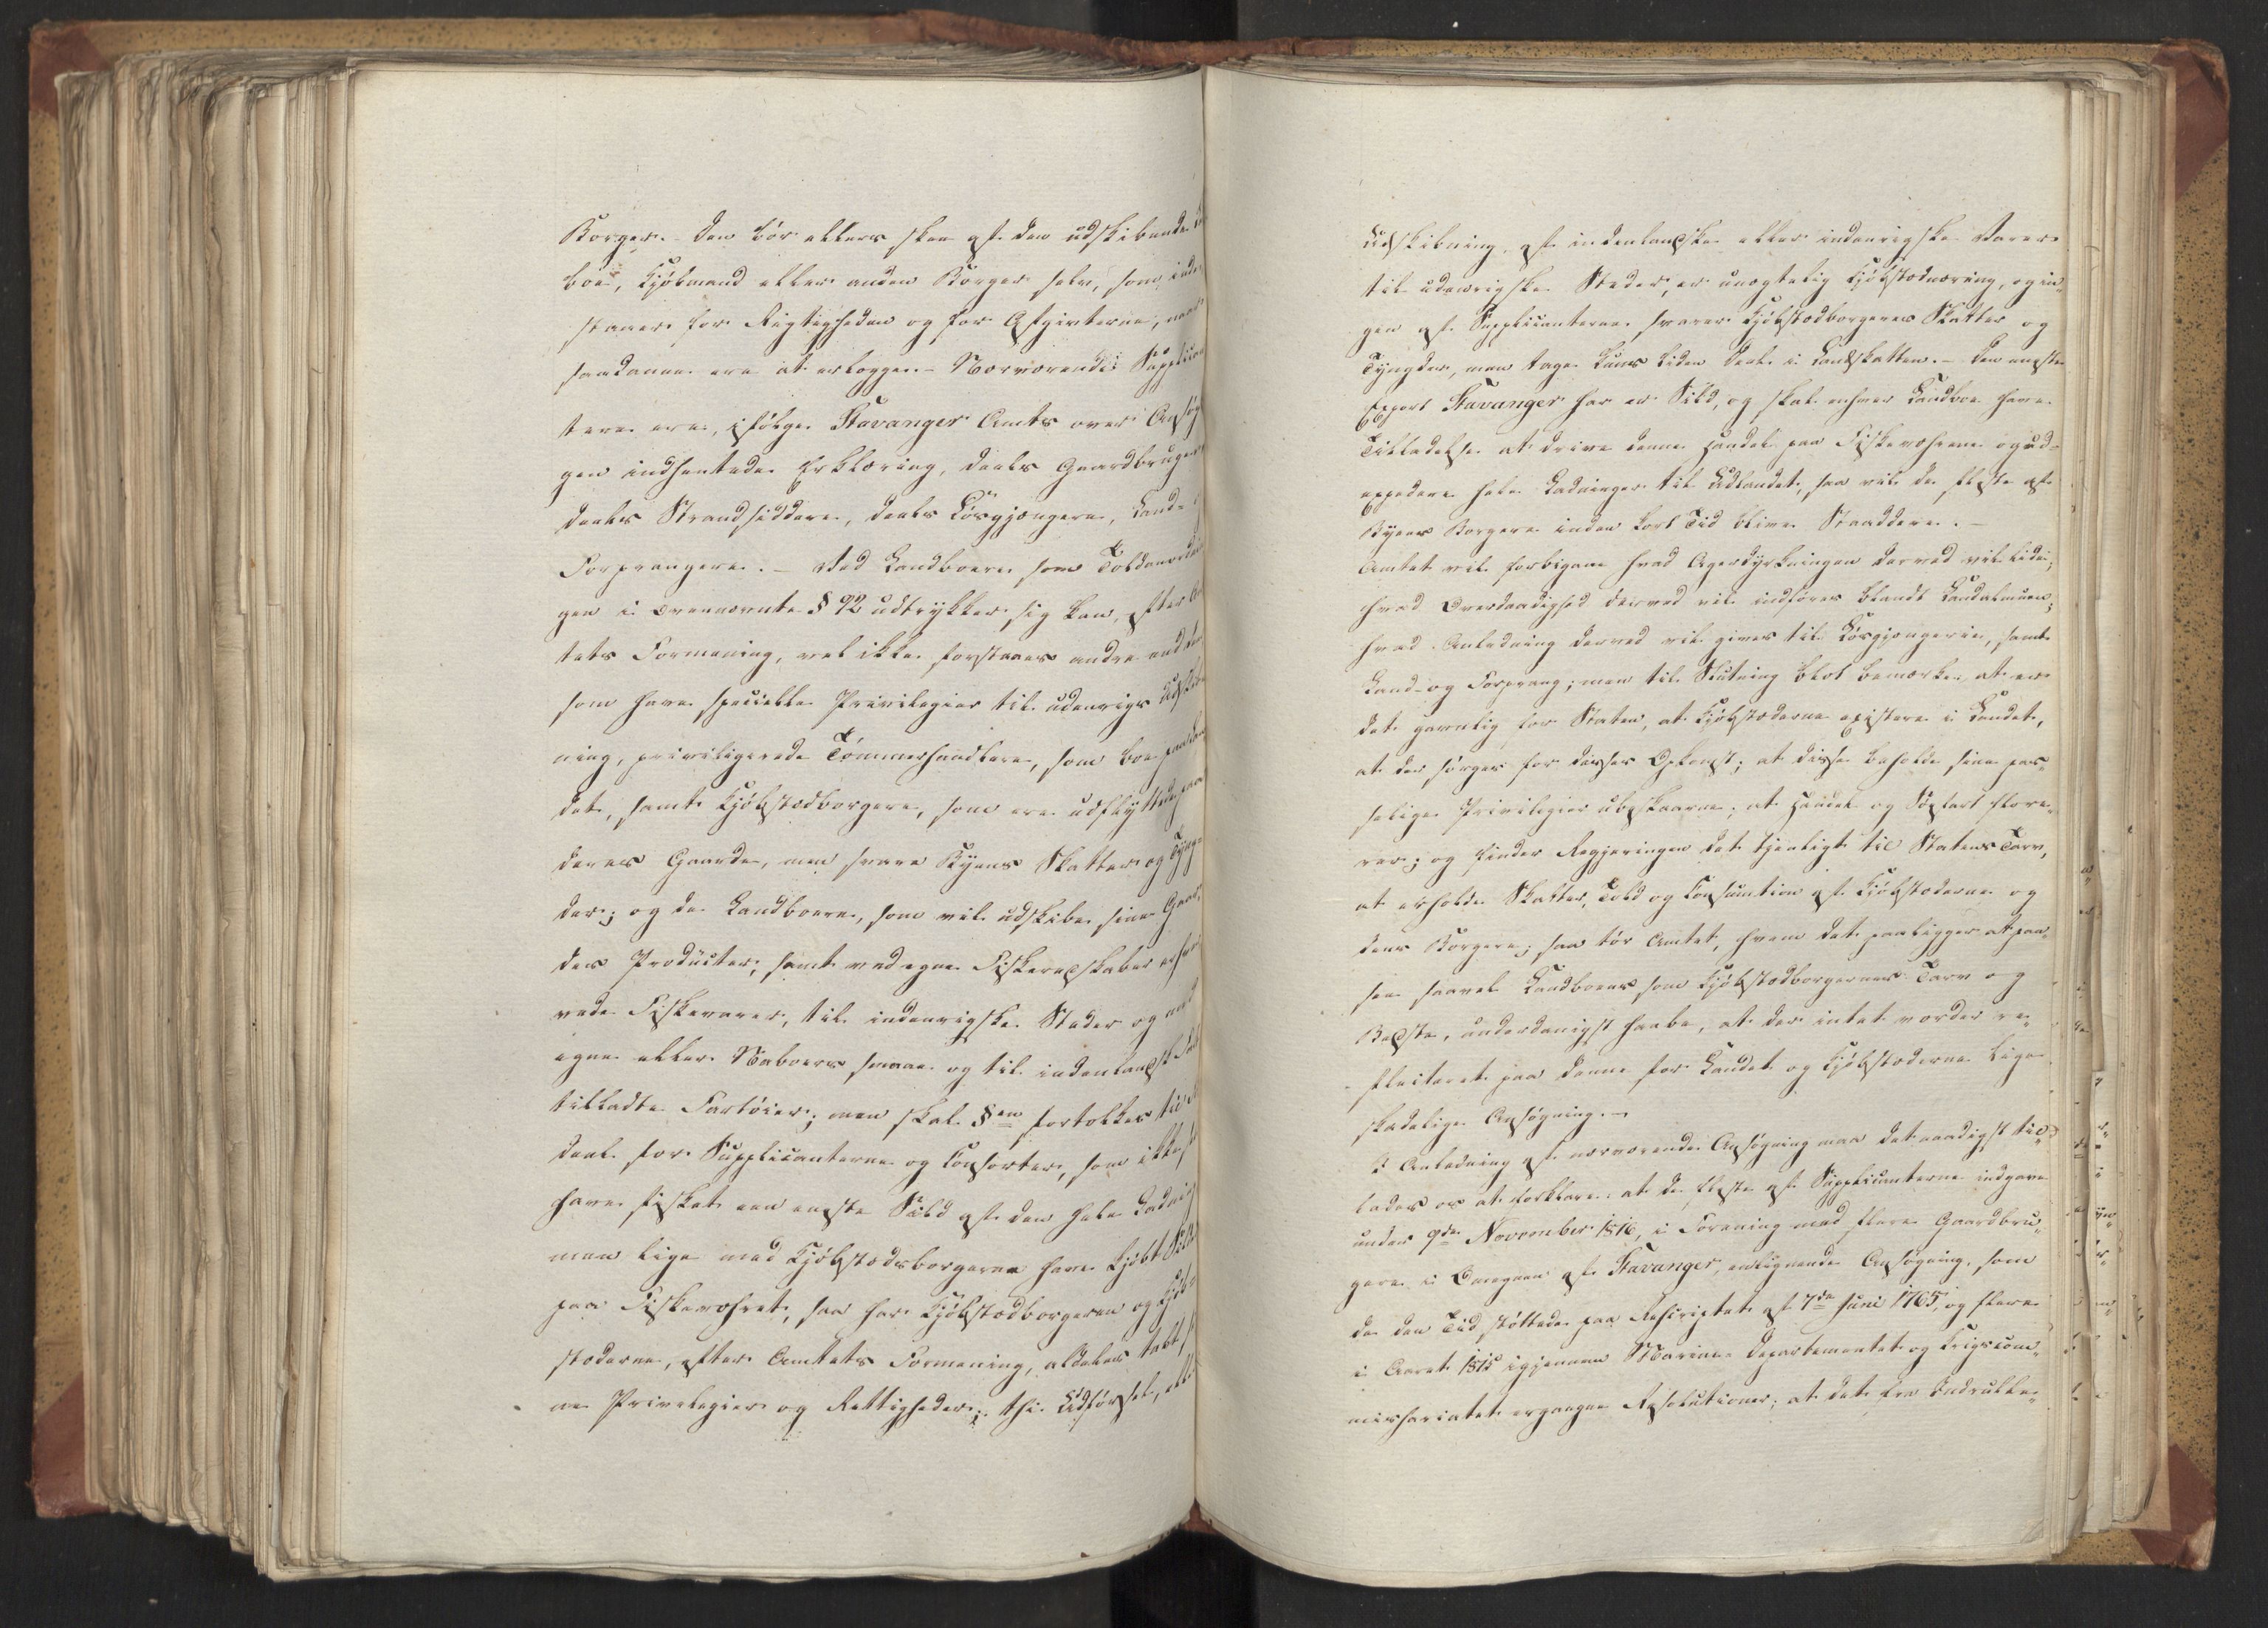 Borger. Den bör ellers skee af den udskibende
boe, Kjöbmand eller anden Borger selv, som inde¬
staaer for Rigtigheden og for Afgivterne, naar
saadanne ere at erlegge. – Nærværende Supplican
tere ere, ifölge Stavanger Amts over Ansög
gen indhentede Erklæring, deels Gaardbrugere
deels Strandsiddere, deels Lösgjængere, Land-
Forprangere. – Ved Landboere som Toldanordnin
gen i ovennævnte § 92 udtrykker sig kan, efter Am
tets Formening, vel ikke forstaaes andre end de
som have specielle Privilegier til udenrigs Udskib
ning, priviligerede Tömmerhandlere, som boe paa Lan
det, samt Kjöbstædborgere, som ere udflyttede paa
deres Gaarde, men svare Byens Skatter og Tyng¬
der; og de Landboere, som vil udskibe sine Gaar¬
des Producter, samt ved egne Fiskeredskaber erhver
vede Fiskevarer, til indenrigske Steder og med
egne eller Naboers smaae og til indenlandsk Fart
tilladte Fartöier; men skal §en fortolkes til
deel for Supplicanterne og Consorter, som ikke
have fisket een eneste Sild af den hele Ladning
men lige med Kjöbstædsborgerne have kjöbt Sild
paa Fiskeværet, saa har Kjöbstædborgeren og Kjöb¬
stæderne, efter Amtets Formening, aldeles tabt si
ne Privilegier og Rettigheder; thi Udförsel, eller
Udskibning af indenlandske eller indenrigske Varer
til udenrigske Steder, er unægtelig Kjöbstædnæring, og in¬
gen af Supplicanterne svarer Kjöbstædborgeres Skatter og
Tyngder, men tage kuns liden Deel i Landskatten. – Den eneste
Export Stavanger har er Sild, og skal enhver Landboe have
Tilladelse at drive denne Handel paa Fiskeværene og ud¬
expedere hele Ladninger til Udlandet, saa vil de fleste af
Byens Borgere inden kort Tid blive Staaddere. –
Amtet vil forbigaae hvad Agerdyrkningen derved vil lide;
hvad Overdaadighed derved vil indföres blandt Landalmuen;
hvad Anledning derved vil gives til Lösgjængerie, samt
Land- og Forprang; men til Slutning blot bemærke, at er
det gavnlig for Staten, at Kjöbstæderne existere i Landet,
at der sörges for disses Opkomst; at disse beholde sine per¬
solige Privilegier ubeskaarne; at Handel og Söefart flore¬
rer; og finder Regjeringen det tjenligt til Statens Tarv,
at erholde Skatter, Told og Consumtion af Kjöbstæderne og
dens Borgere; saa tör Amtet, hvem det paaligger at paa¬
see saavel Landboens som Kjöbstædborgernes Tarv og
Bedste, underdanigst haabe, at der intet vorder re¬
flecteret paa denne for Landet og Kjöbstæderne lige
skadelige Ansögning. –
I Anledning af nærværende Ansögning maa det naadigst til¬
lades os at forklare: at de fleste af Supplicanterne indgave
under 9de November 1816, i Forening med flere Gaardbru¬
gere i Omegnen af Stavanger, enlignende Ansögning, som
de den Tid stöttede paa Rescriptet af 7de Juni 1765, og flere
i Aaret 1815 igjennem Marine-Departementet og Krigscom¬
missariatet ergangne Resolutioner; at det fra Indrulle¬